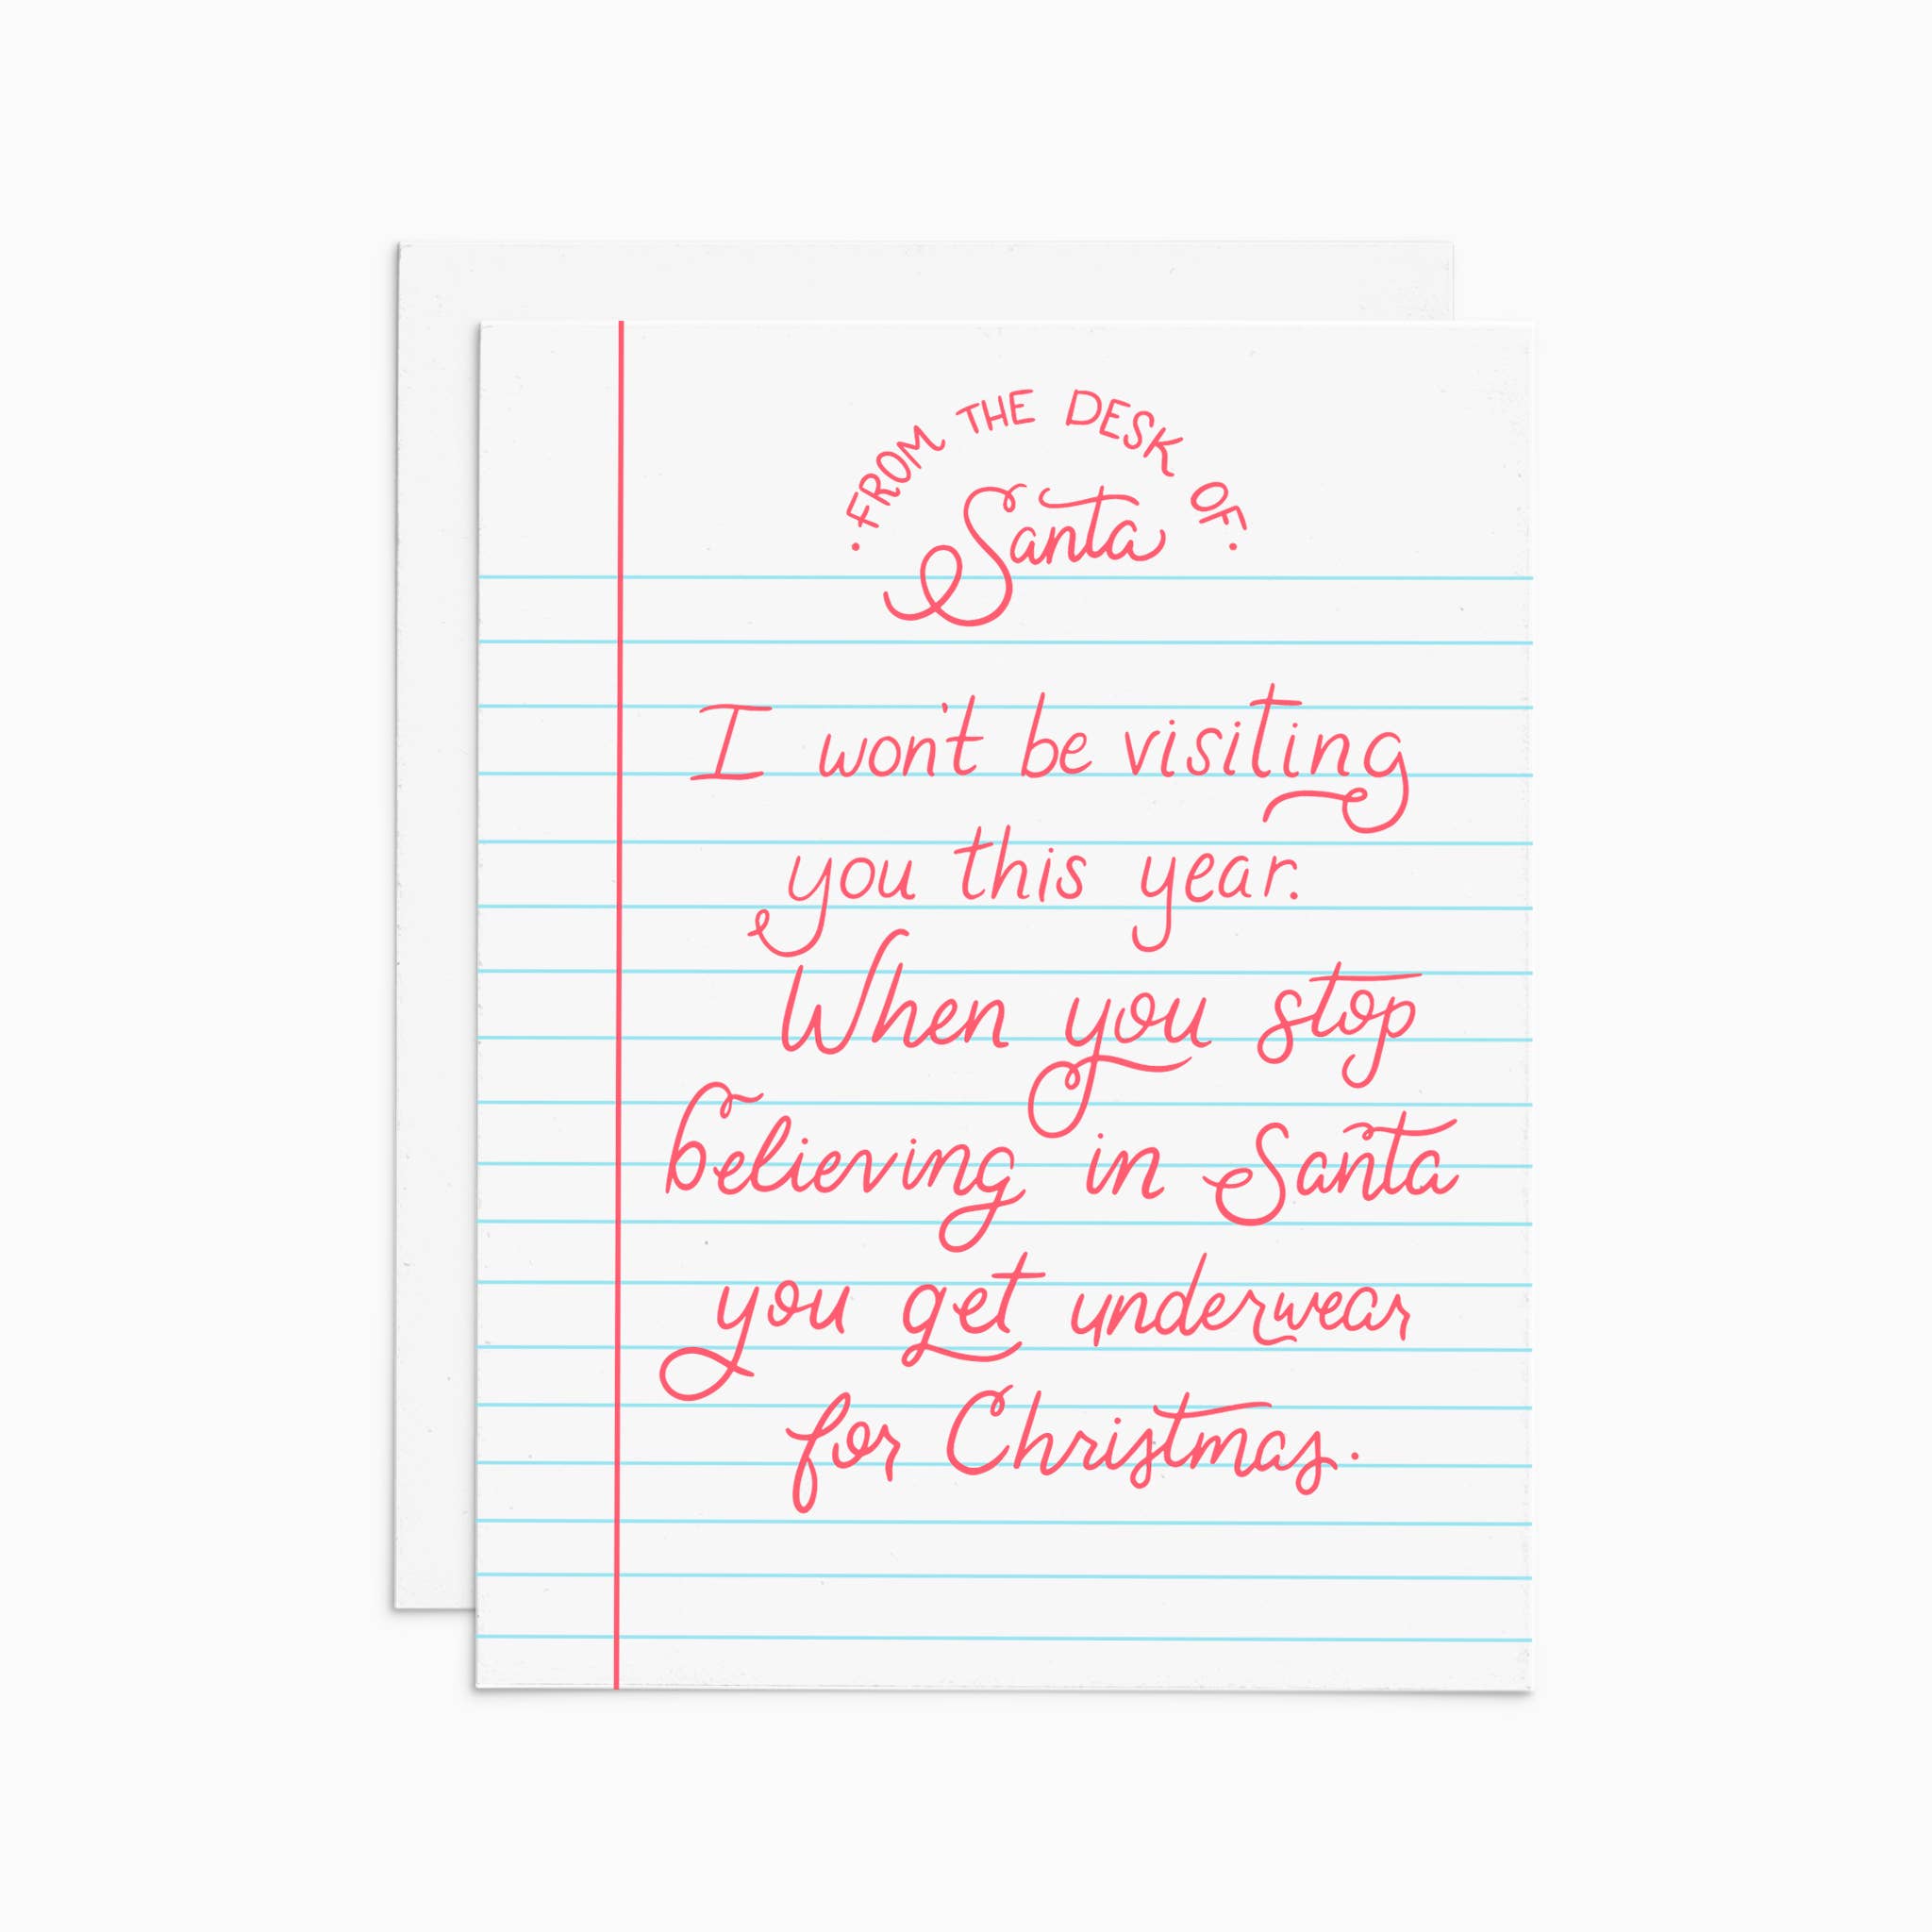 • FROM THE DESK OF •
Santa
I won't be visiting
you this year.
When you stop
believing in Santa
you get underwear
for Christmas.